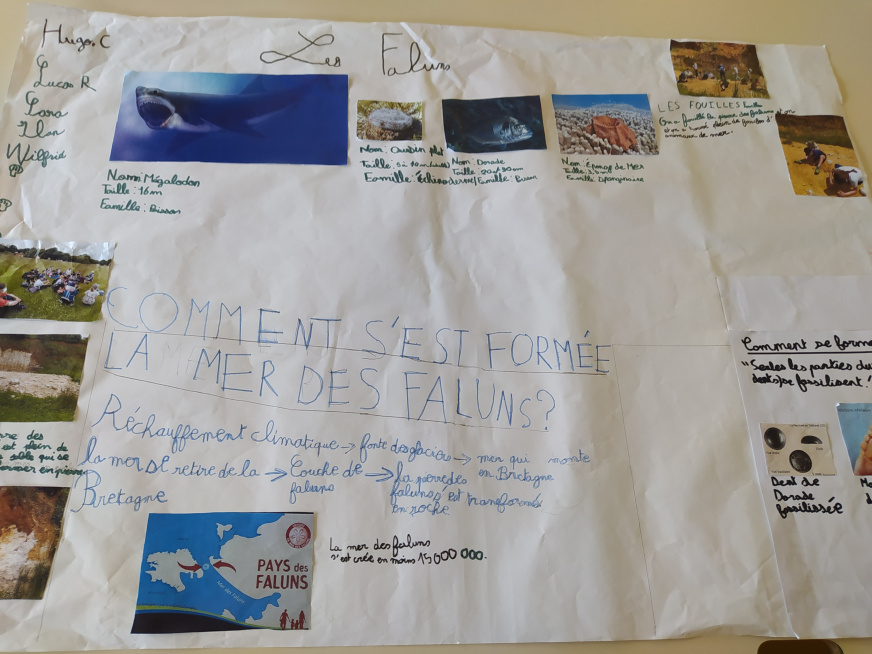 Hugo.C
Lucas R
Ilan
Wilfrid
Les Faluns
Nom: Mégalodon
Taille: 16m
Famille: Poisson
Nom: Oursin plat
Taille: 5 à 10
Famille:
Nom: Dorade
Taille: 20 à 90 cm
Famille:
Nom: Éponge de Mer
Taille:
Famille:
LES FOUILLES
On a fouillé la pierre des faluns et on
animaux de mer.
COMMENT S'EST FORMÉE
LA MER DES FALUNS?
Réchauffement climatique → fonte des glaciers → mer qui monte
en Bretagne
la mer se retire de la → Couche de →
Bretagne
faluns
La pierre des
faluns s'est transformée
en roche
PAYS des
FALUNS
La mer des faluns
s'est crée en moins 15 000 000.
rre des
est plein de
sable qui se
ormer en pierre
Comment se forme
"Seules les parties du
se fossilisent!
Dent de
Dorade
fossilisée